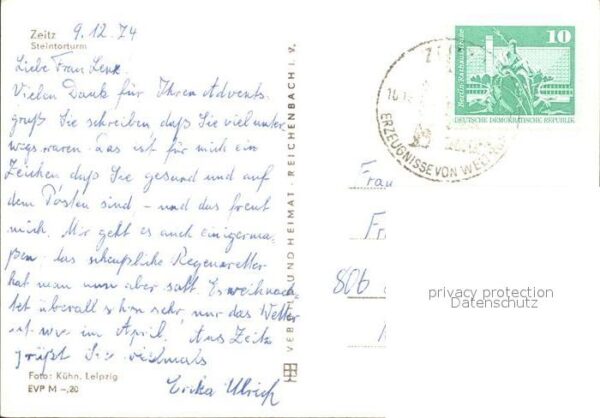 Zeitz 9.12.74
Steintorturm
Liebe Frau Lenz!
Vielen Dank für Ihren Advents-
gruß Sie schreiben, daß Sie viel unter
wegs waren. Das ist für mich ein
Zeichen daß Sie gesund und auf
dem Posten sind, – und das freut
mich. Mir geht es auch einigerma-
ßen – das scheußliche Regenwetter
hat man nun aber satt. Es weihnach-
tet überall schon sehr, nur das Wetter
ist wie im April. Aus Zeitz
grüßt Sie vielmals
Erika Ulrich
Foto: Kühn, Leipzig
EVP M –,20
VEB BILD UND HEIMAT · REICHENBACH i. V.
10
Berlin Rathausstraße
DEUTSCHE DEMOKRATISCHE REPUBLIK
ERZEUGNISSE VON WELT
Frau
Fr
806
privacy protection
Datenschutz